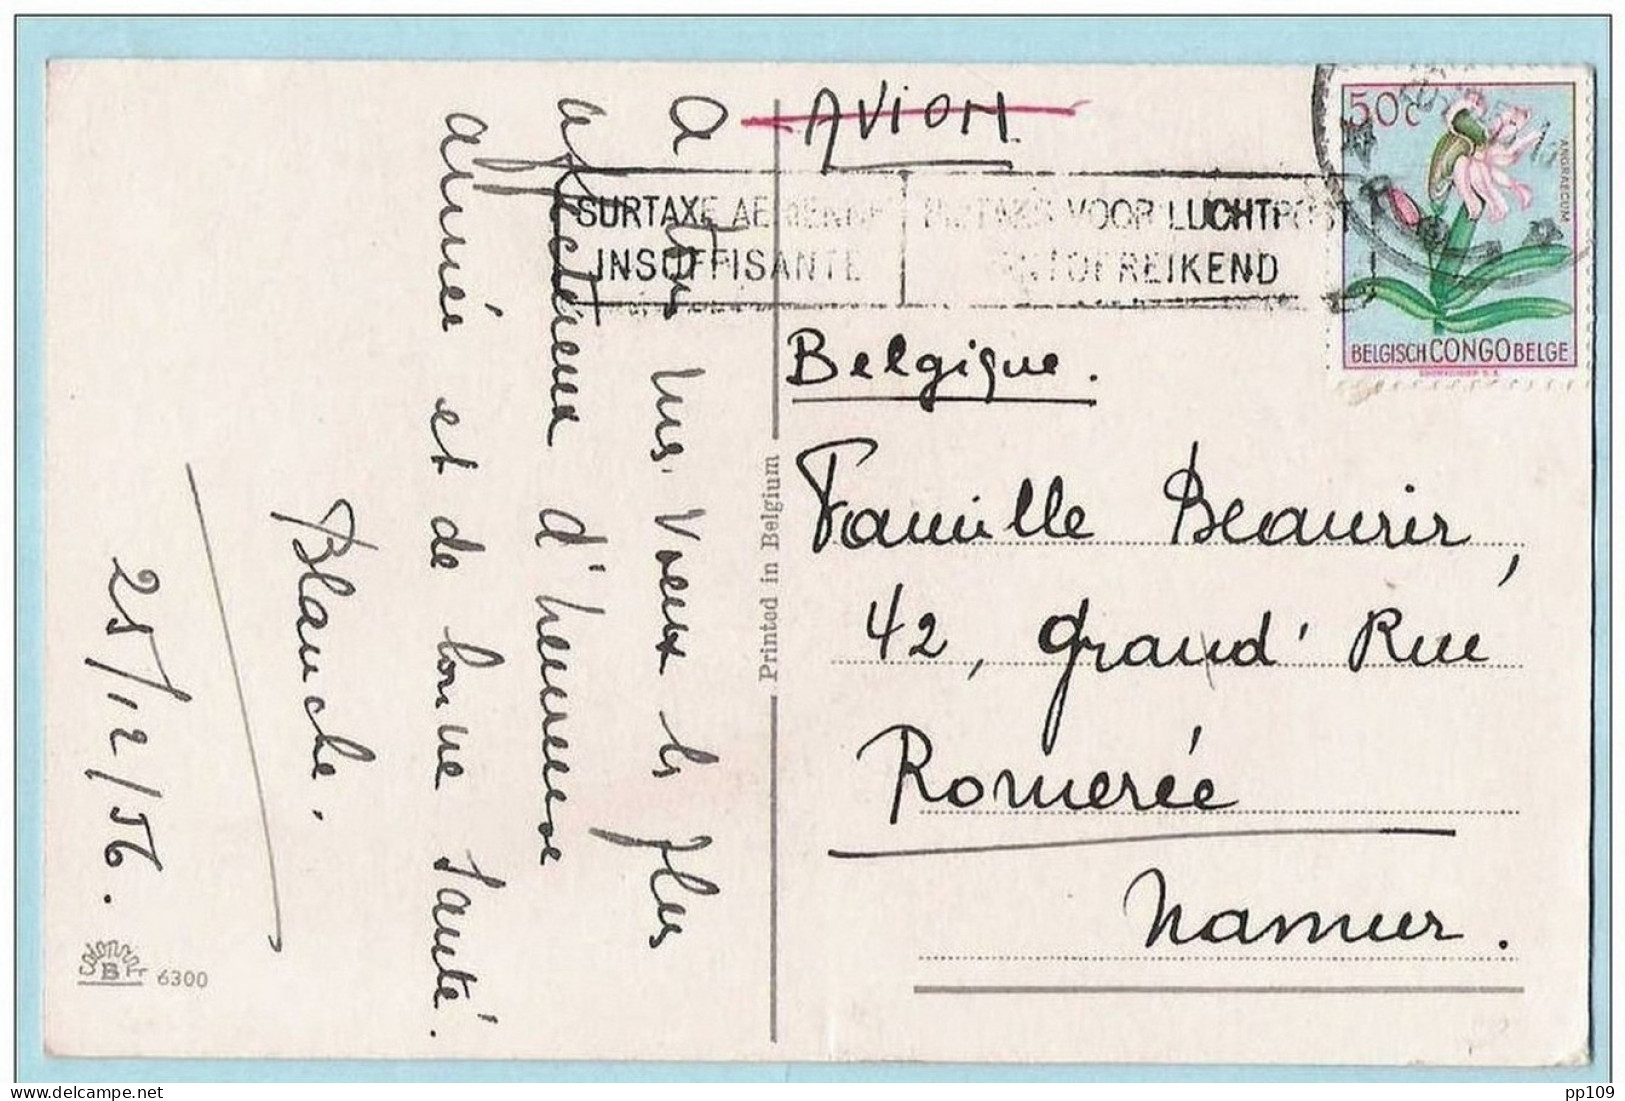 A tous mes Voeux les plus
affectueux d'heureuse
année et de bonne Santé.
Blanche.
25/12/56.
colorprint
B
6300
Printed in Belgium
AVION
SURTAXE AERIENNE
INSUFFISANTE
BIJTAKS VOOR LUCHTPOST
ONTOEREIKEND
50c
ANGRAECUM
BELGISCH CONGO BELGE
Belgique.
Famille Beaurir,
42, Grand' Rue
Romerée
Namur.
pp109